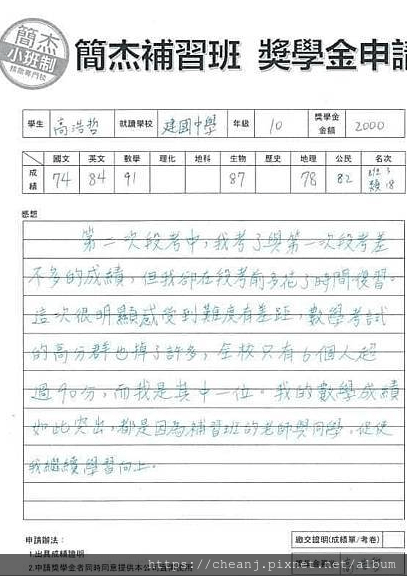 簡杰
小班制
簡杰補習班 獎學金申請
學生 高浩哲 就讀學校 建國中學 年級 10 獎學金金額 2000
國文 英文 數學 理化 地科 生物 歷史 地理 公民 名次
成績 74 84 91 87 78 82 班3 類18
感想
第二次段考中,我考了與第一次段考差
不多的成績,但我卻在段考前多花了時間復習。
這次很明顯感受到難度有差距,數學考試
的高分群也掉了許多,全校只有6個人超
過90分,而我是其中一位。我的數學成績
如此突出,都是因為補習班的老師與同學,促使
我繼續學習向上。
申請辦法:
1.出具成績證明
2.申請獎學金者同時同意提供本
繳交證明(成績單/考卷)
https://cheanj.pixnet.net/album